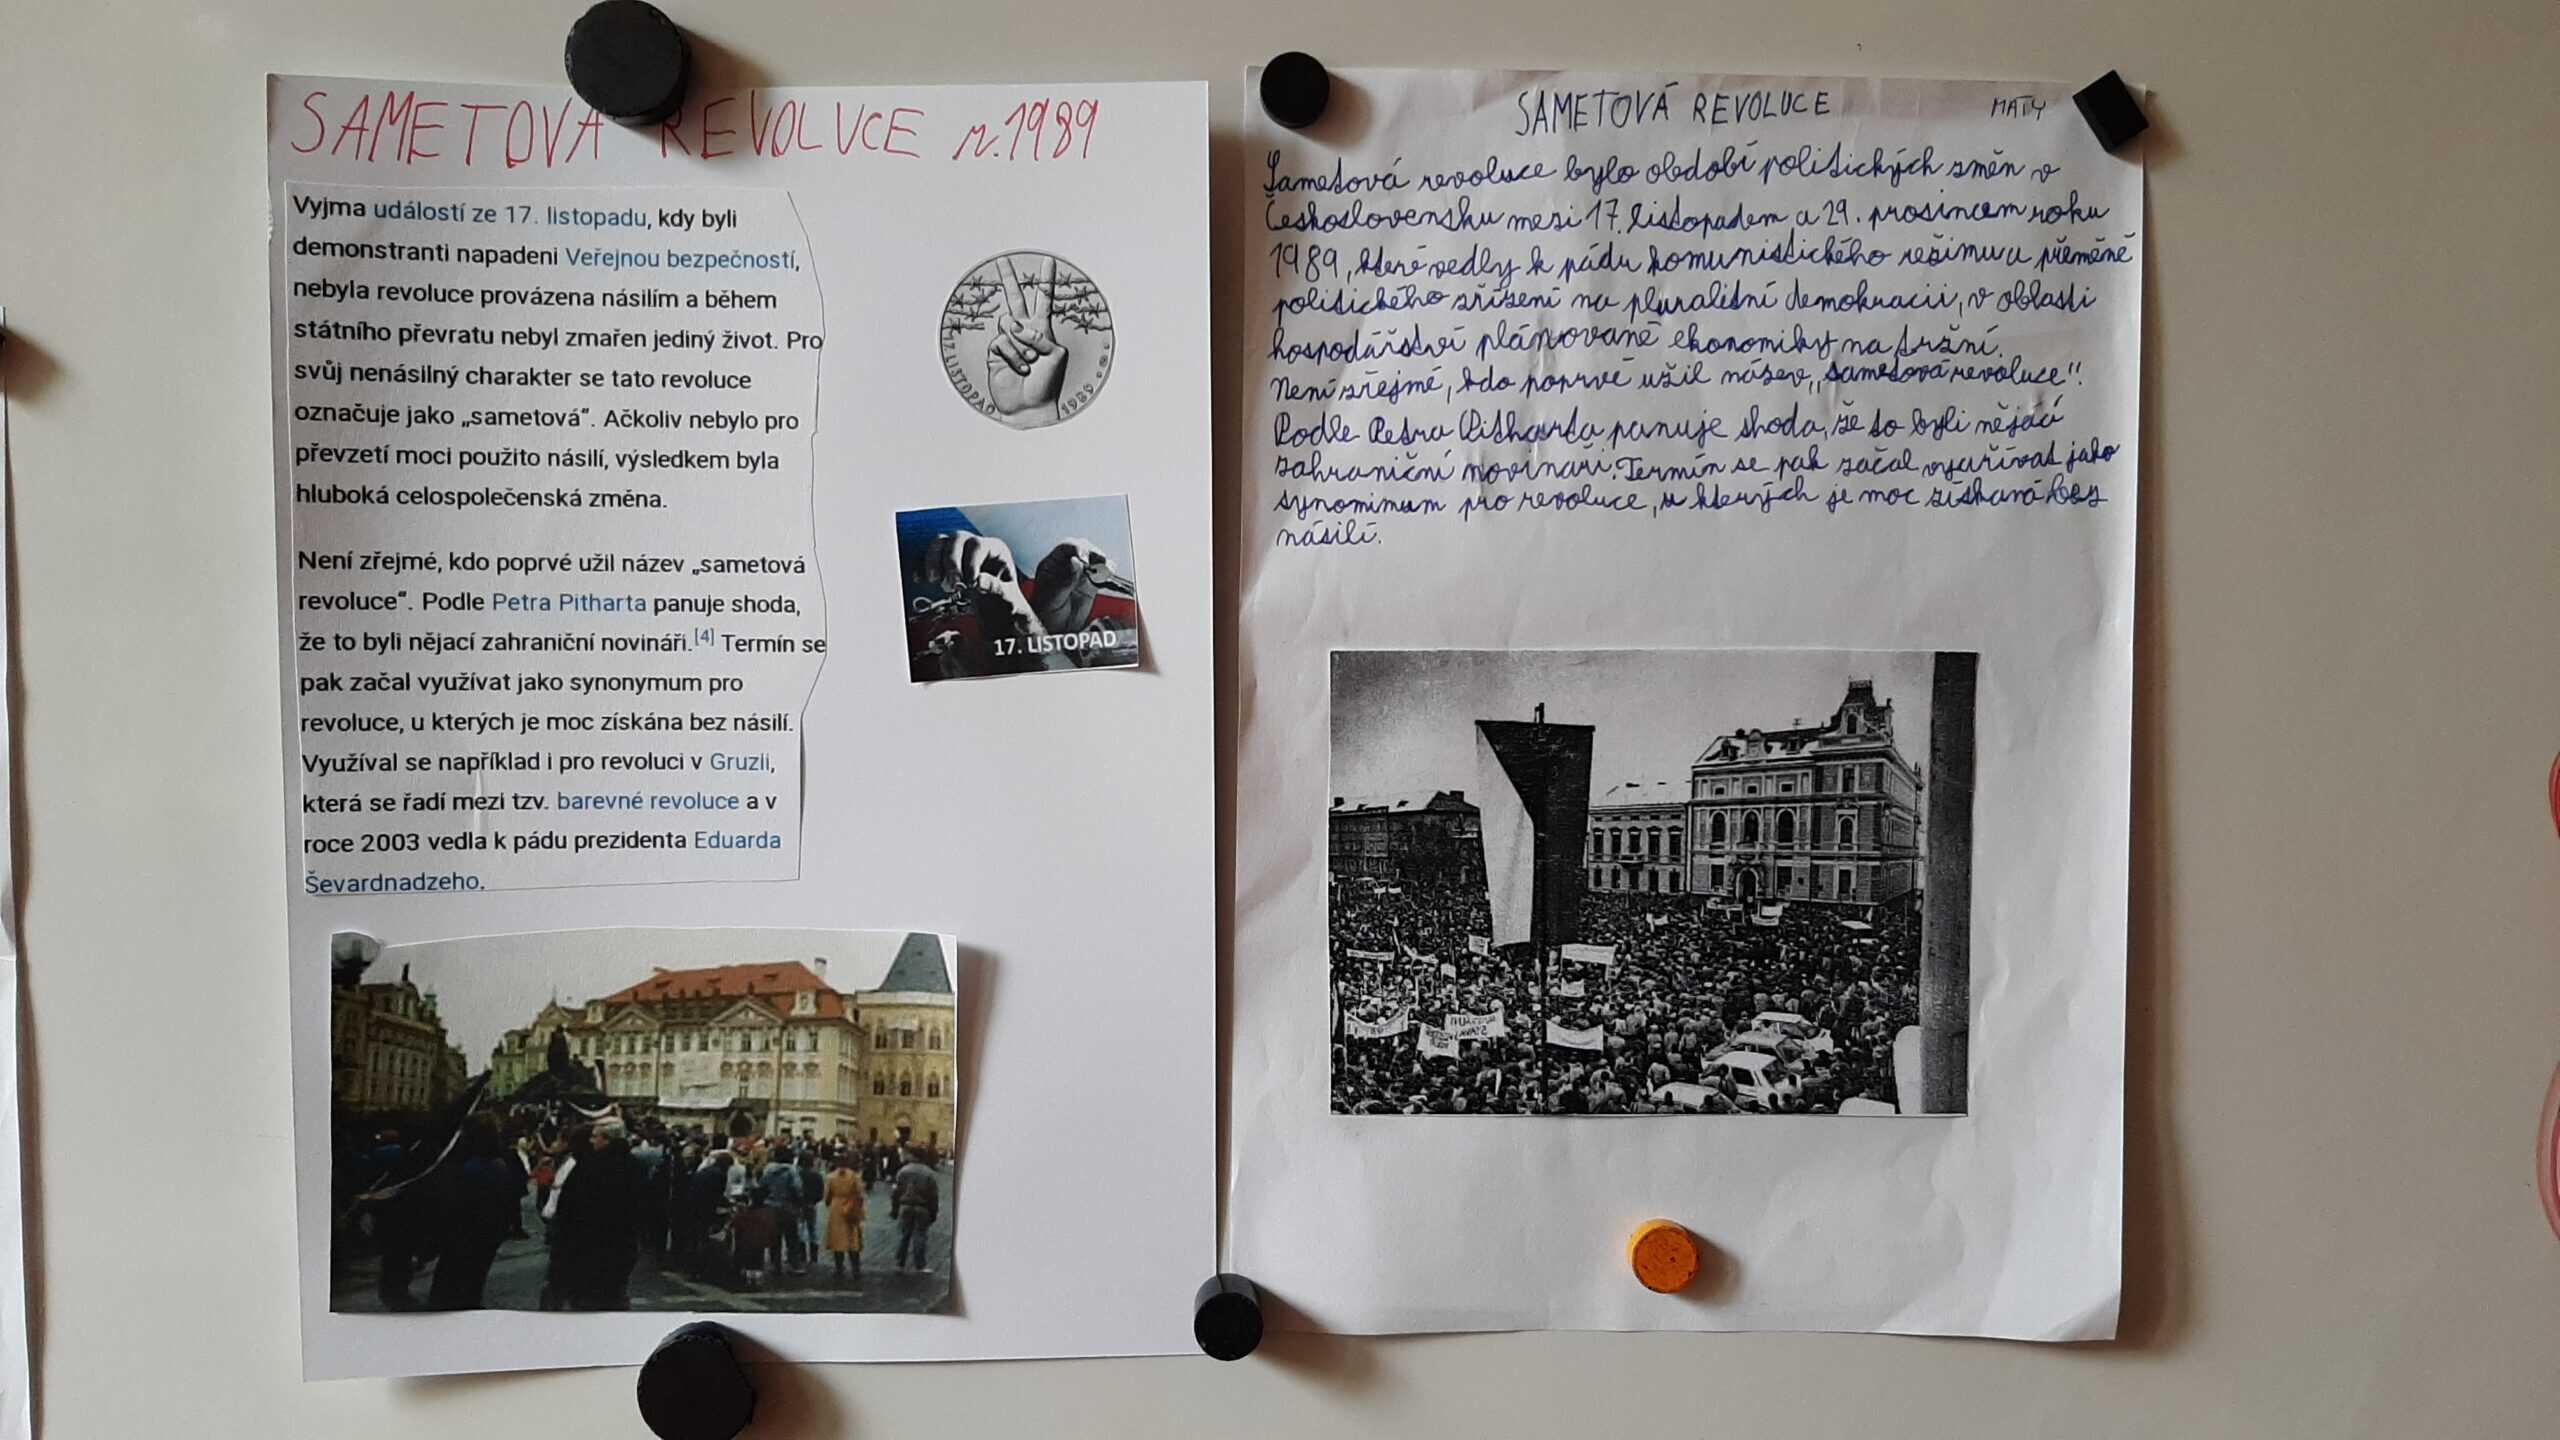 SAMETOVÁ REVOLUCE r.1989
Vyjma událostí ze 17. listopadu, kdy byli
demonstranti napadeni Veřejnou bezpečností,
nebyla revoluce provázena násilím a během
státního převratu nebyl zmařen jediný život. Pro
svůj nenásilný charakter se tato revoluce
označuje jako „sametová“. Ačkoliv nebylo pro
převzetí moci použito násilí, výsledkem byla
hluboká celospolečenská změna.
Není zřejmé, kdo poprvé užil název „sametová
revoluce“. Podle Petra Pitharta panuje shoda,
že to byli nějací zahraniční novináři.[4] Termín se
pak začal využívat jako synonymum pro
revoluce, u kterých je moc získána bez násilí.
Využíval se například i pro revoluci v Gruzii,
která se řadí mezi tzv. barevné revoluce a v
roce 2003 vedla k pádu prezidenta Eduarda
Ševardnadzeho.
17. LISTOPAD 1989
17. LISTOPAD
SAMETOVÁ REVOLUCE
MATY
Sametová revoluce bylo období politických změn v
Československu mezi 17. listopadem a 29. prosincem roku
1989, které vedly k pádu komunistického režimu a přeměně
politického zřízení na pluralitní demokracii, v oblasti
hospodářství plánované ekonomiky na tržní.
Není zřejmé, kdo poprvé užil název „sametová revoluce".
Podle Petra Pitharta panuje shoda, že to byli nějací
zahraniční novináři. Termín se pak začal využívat jako
synomimum pro revoluce, u kterých je moc získaná bez
násilí.